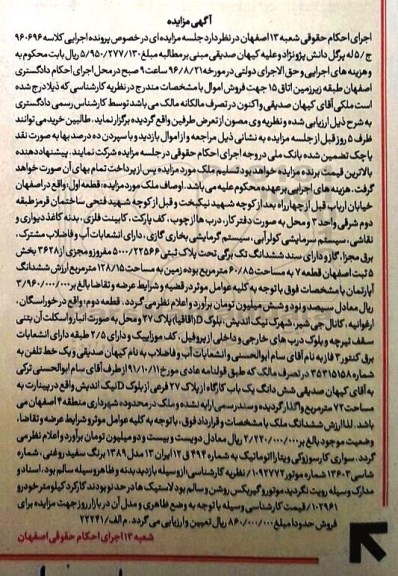 آگهی مزایده
اجرای احکام حقوقی شعبه ۱۳ اصفهان در نظر دارد جلسه مزایده ای در خصوص پرونده اجرایی کلاسه ۹۶۰۶۹۶
ج/۵ له پرگل دانش پژو نژاد و علیه کیهان صدیقی مبنی بر مطالبه مبلغ ۵/۹۵۰/۲۷۷/۱۳۰ ریال بابت محکوم به
و هزینه های اجرایی و حق الاجرای دولتی در مورخه ۹۶/۸/۲۱ ساعت ۹ صبح در محل اجرای احکام دادگستری
اصفهان طبقه زیرزمین اتاق ۱۵ جهت فروش اموال با مشخصات مندرج در نظریه کارشناسی که ذیلا درج شده
است ملکی آقای کیهان صدیقی و اکنون در تصرف مالکانه مالک می باشد توسط کارشناس رسمی دادگستری
به شرح ذیل ارزیابی شده و نظریه وی مصون از تعرض طرفین واقع گردیده برگزار نماید. طالبین خرید می توانند
ظرف ۵ روز قبل از جلسه مزایده به نشانی ذیل مراجعه و از اموال بازدید و با سپردن ده درصد بها به صورت نقد
یا چک تضمین شده بانک ملی در وجه اجرای احکام حقوقی در جلسه مزایده شرکت نمایند. پیشنهاد دهنده
بالاترین قیمت برنده مزایده خواهد بود تسلیم ملک مورد مزایده پس از پرداخت تمام بهای آن صورت خواهد
گرفت. هزینه های اجرایی بر عهده محکوم علیه می باشد. اوصاف ملک مورد مزایده: قطعه اول: واقع در اصفهان
خیابان ارباب قبل از چهار راه بعد از کوچه شهید نیکبخت و قبل از کوچه شهید فتحی ساختمان قرمز طبقه
دوم شرقی واحد ۳ و محل به صورت دفتر کار، درب ها از چوب، کف پارکت، کابینت فلزی، بدنه کاغذ دیواری و
نقاشی، سیستم سرمایشی کولر آبی، سیستم گرمایشی بخاری گازی، دارای انشعابات آب و فاضلاب مشترک،
برق مجزا، گاز و دارای سند ششدانگ تک برگی تحت پلاک ثبتی ۵۰۰۰/۲۲۵۶۶ مفروز و مجزی از ۳۶۲۸ بخش
۵ ثبت اصفهان قطعه ۷ به مساحت ۶۰/۸۵ مترمربع بوده زمین به مساحت ۱۲۸/۱۵ مترمربع ارزش ششدانگ
آپارتمان با مشخصات فوق با توجه به کلیه عوامل موثر در قضیه و شرایط عرضه و تقاضا بالغ بر ۳/۹۶۰/۰۰۰/۰۰۰
ریال معادل سیصد و نود و شش میلیون تومان برآورد و اعلام نظر می گردد. قطعه دوم: واقع در خوراسگان،
ارغوانیه، کانال جی شیر، شهرک نیک اندیش، بلوک D (اقاقیا) پلاک ۲۷ و محل به صورت انبار و اسکلت آن بتنی
سقف تیرچه و بلوک درب های خارجی و داخلی از پروفیل، کف موزاییک و دارای ۲/۵ طبقه دارای انشعابات
برق کنتور ۳ فاز به نام آقای سام ابوالحسنی و انشعابات آب و فاضلاب به نام کیهان صدیقی و یک خط تلفن به
شماره ۳۵۳۱۵۱۵۸ در تصرف مالک که طبق قولنامه عادی مورخ ۹۱/۱۰/۱۱ از طرف آقای سام ابوالحسنی ترکی
به آقای کیهان صدیقی شش دانگ یک باب کارگاه از پلاک ۲۷ فرعی از بلوک D نیک اندیش واقع در پینارت به
مساحت ۷۲ مترمربع واگذار گردیده و سند رسمی ارایه نشده و ملک در محدوده شهرداری منطقه ۴ اصفهان می
باشد. لذا ارزش ششدانگ ملک با مشخصات و قرارداد فوق، با توجه به کلیه عوامل موثر و شرایط عرضه و تقاضا،
وضعیت موجود بالغ بر ۲/۲۲۰/۰۰۰/۰۰۰ ریال معادل دویست و بیست و دو میلیون تومان برآورد و اعلام نظر می
گردد. سواری کار سوزوکی ویتارا اتوماتیک به شماره ۴۹۴ ق ۱۲ ایران ۱۳ مدل ۱۳۸۹ برنگ سفید روغنی، شماره
شاسی ۱۳۶۰۳ شماره موتور ۱۰۹۲۷۷۲/ نظریه کارشناسی: از وسیله بازدید بدنه و ظاهر وسیله سالم بود، اسناد و
مدارک وسیله رویت نگردید موتور و گیربکس روشن و سالم بود لاستیک ها در حد نو بودند کارکرد کیلومتر خودرو
۱۰۲۹۶۱/ قیمت کارشناسی وسیله با توجه به وضع ظاهری و مدل آن در بازار روز جهت مزایده برای
فروش حدودا مبلغ ۸۶۰/۰۰۰/۰۰۰ ریال تعیین و ارزیابی می گردد. م الف/۲۲۲۴۱
شعبه ۱۳ اجرای احکام حقوقی اصفهان